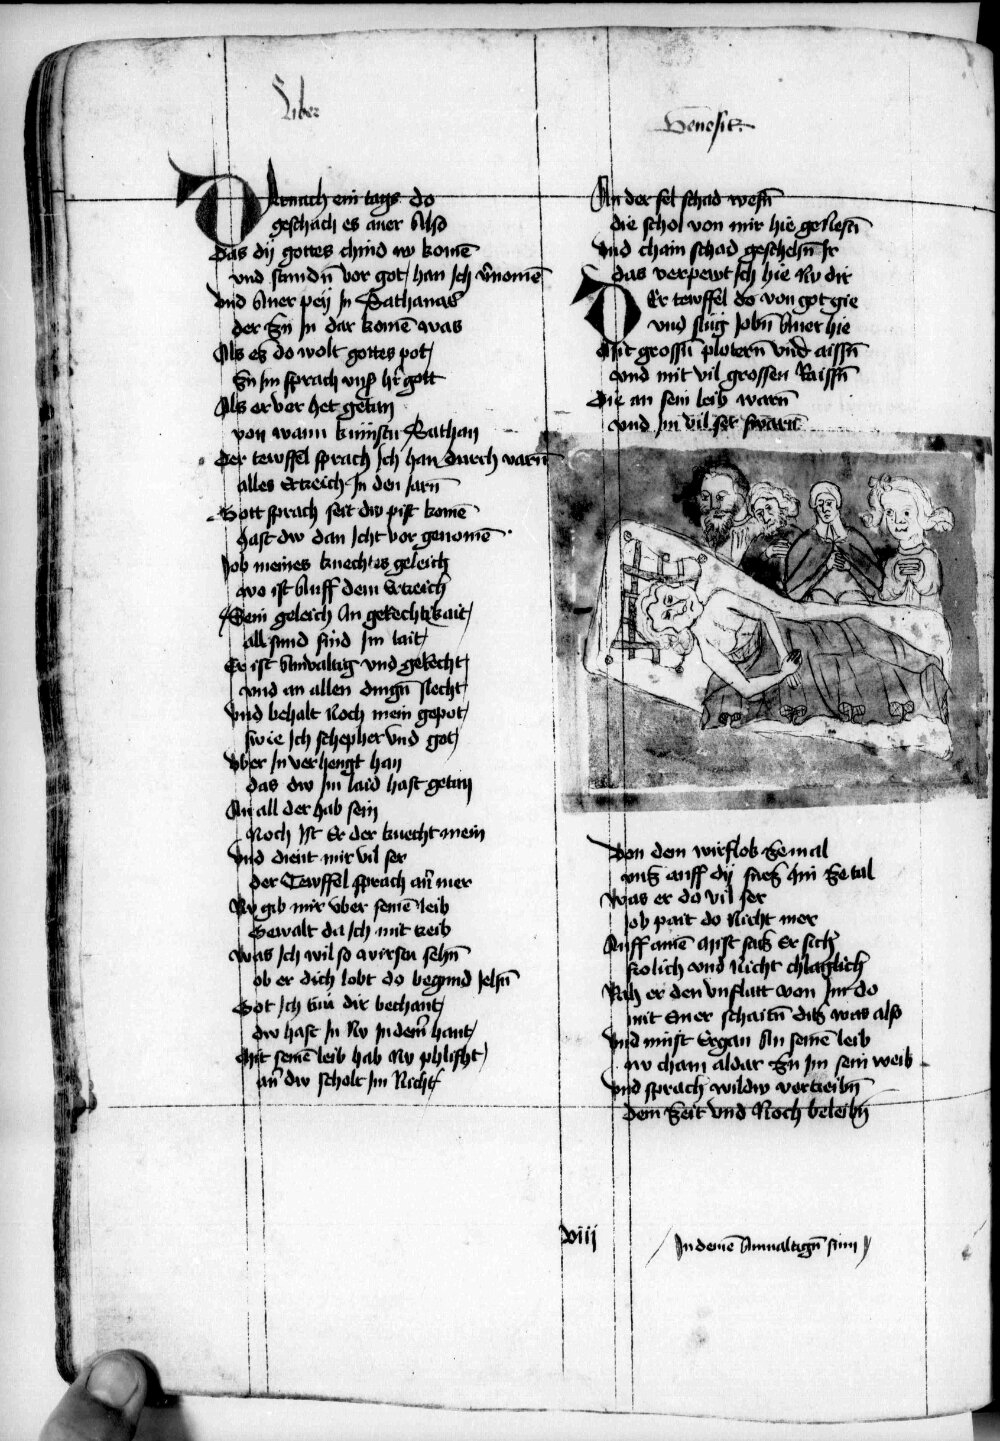 Liber
Genesis
Darnach ein tags do
geschach es auer Also
Das dij gottes chind nv komē
vnd stundn̄ vor got han Ich v̄nomē
Vnd Auer peij In Sathanas
der Zu In dar komē was
Als eß do wolt gottes pot
Zu Im sprach vnß hr̄ gott
Als er vor het getan
von wann kumstu Sathan
Der tewffel sprach Ich han durch varn̄
alles Ertreich In den Jarn̄
Gott sprach seit dw pist komē
hast dw dan Icht vor genomē
Job meines knechtes geleich
wo ist Auff dem Ertreich
Sein geleich An gerechtikait
all sund sind Im lait
Er ist Ainvaltig vnd gerecht
vnd an allen dingn̄ slecht
Vnd behalt Noch mein gepot
swie Ich schepher vnd got
Vber In verhengt han
das dw Im laid hast getan
An all der hab sein
Noch Ist Er der knecht mein
Vnd dient mir vil ser
der Tewffel sprach an̄ mer
Nv gib mir vber seinē leib
Gewalt da Ich mit treib
Was Ich wil so wirstu sehn̄
ob er dich lobt do begund Jehn̄
Got Ich tun dir bechant
dw hast In Nv In dein̄ hant
Mit seinē leib hab Nv phlicht
an̄ dw scholt Im Nicht
An der sel schad wesn̄
die schol von mir hie genesn̄
Vnd chain schad geschehn̄ Ir
das verpewt Ich hie Nv dir
Der tewffel do von got gie
vnd slug Jobn̄ Auer hie
Mit grossn̄ plotern̄ vnd aissn̄
vnd mit vil grossen Raissn̄
Die an sein leib warn̄
vnd Im vil ser swarn̄
Von dem wirflob ze mal
vnß auff dij fueß hin ze tal
Was er do vil ser
Job pait do Nicht mer
Auff ainē mist saß Er sich
frolich vnd Nicht chlaglich
Rah er den vnflatt von Im do
mit Einer schaitn̄ diß was also
Vnd must Ergan An seinē leib
nv cham aldar Zu Im sein weib
Vnd sprach wildw vertreibn̄
dein Zeit vnd Noch beleibn̄
viij
In deinē Ainualtign̄ sinn